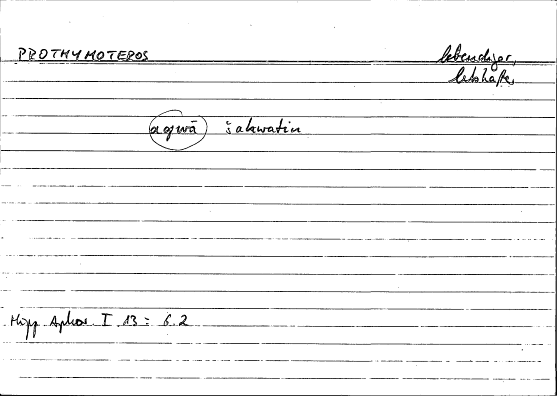 PROTHYMOTEROS lebendiger,
lebhafter
aqwā šahwatin
Hipp Aphor I 13 = 6.2